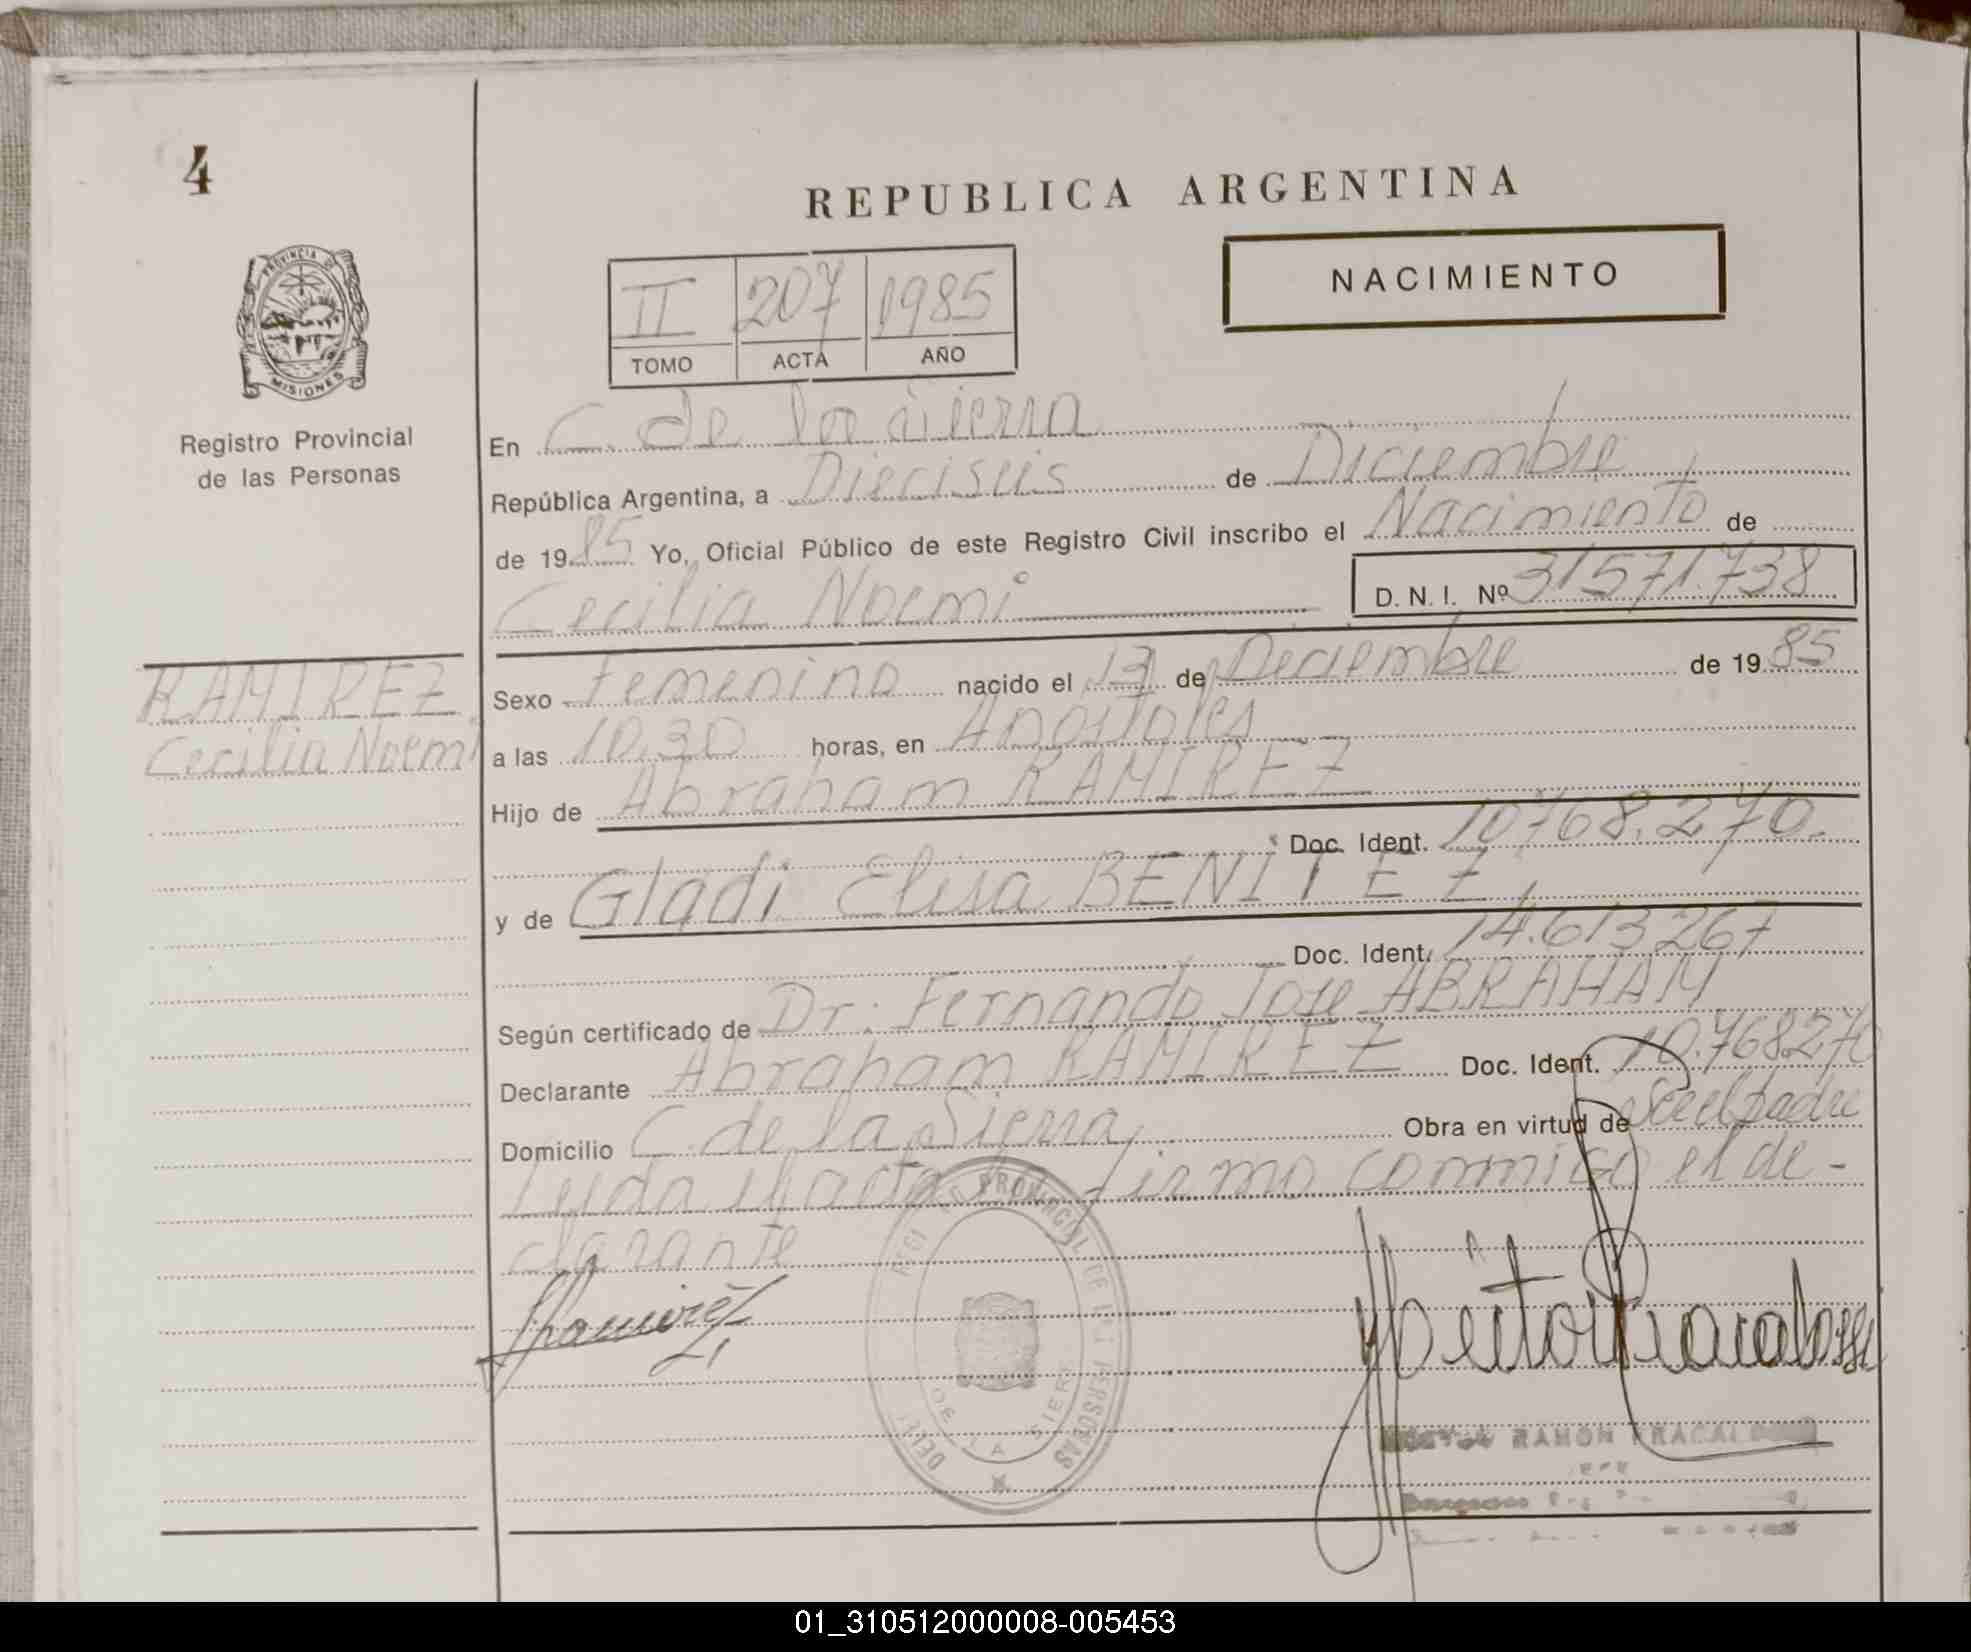 4
REPUBLICA ARGENTINA
PROVINCIA DE
MISIONES
Registro Provincial
de las Personas
II 207 1985
TOMO ACTA AÑO
NACIMIENTO
En C. de la Sierra
República Argentina, a Dieciseis de Diciembre
de 1985 Yo, Oficial Público de este Registro Civil inscribo el Nacimiento de
Cecilia Noemi D.N.I. Nº 31571.738
RAMIREZ
Cecilia Noemi
Sexo Femenino nacido el 13 de Diciembre de 1985
a las 10,30 horas, en Apóstoles
Hijo de Abraham RAMIREZ
Doc. Ident. 10768.270.
y de Gladi Elisa BENITEZ
Doc. Ident. 14.613267
Según certificado de Dr. Fernando Jose ABRAHAM
Declarante Abraham RAMIREZ Doc. Ident. 10.768270
Domicilio C. de la Sierra Obra en virtud de Ser el padre
Leyda el acta firma conmigo el de-
clarante
Ramirez
REGISTRO PROVINCIAL DE LAS PERSONAS
DE LA SIERRA
RAMON
01_310512000008-005453